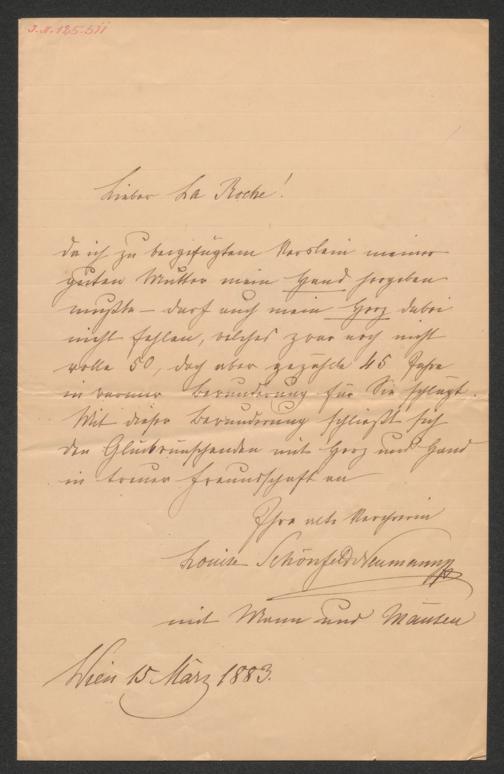 J. N. 125.511
Lieber La Roche!
da ich zu beigefügtem Verslein meiner
guten Mutter mein Hand hergeben
mußte – darf auch mein Herz dabei
nicht fehlen, welches zwar noch nicht
volle 50, doch aber gezählte 45 Jahre
in warmer Bewunderung für Sie schlägt.
Mit dieser Bewunderung schließt sich
den Glückwünschenden mit Herz und Hand
in treuer Freundschaft an
Ihre alte Verehrerin
Louise Schönfeld Neumann
mit Mann und Mäusen
Wien 15 März 1883.